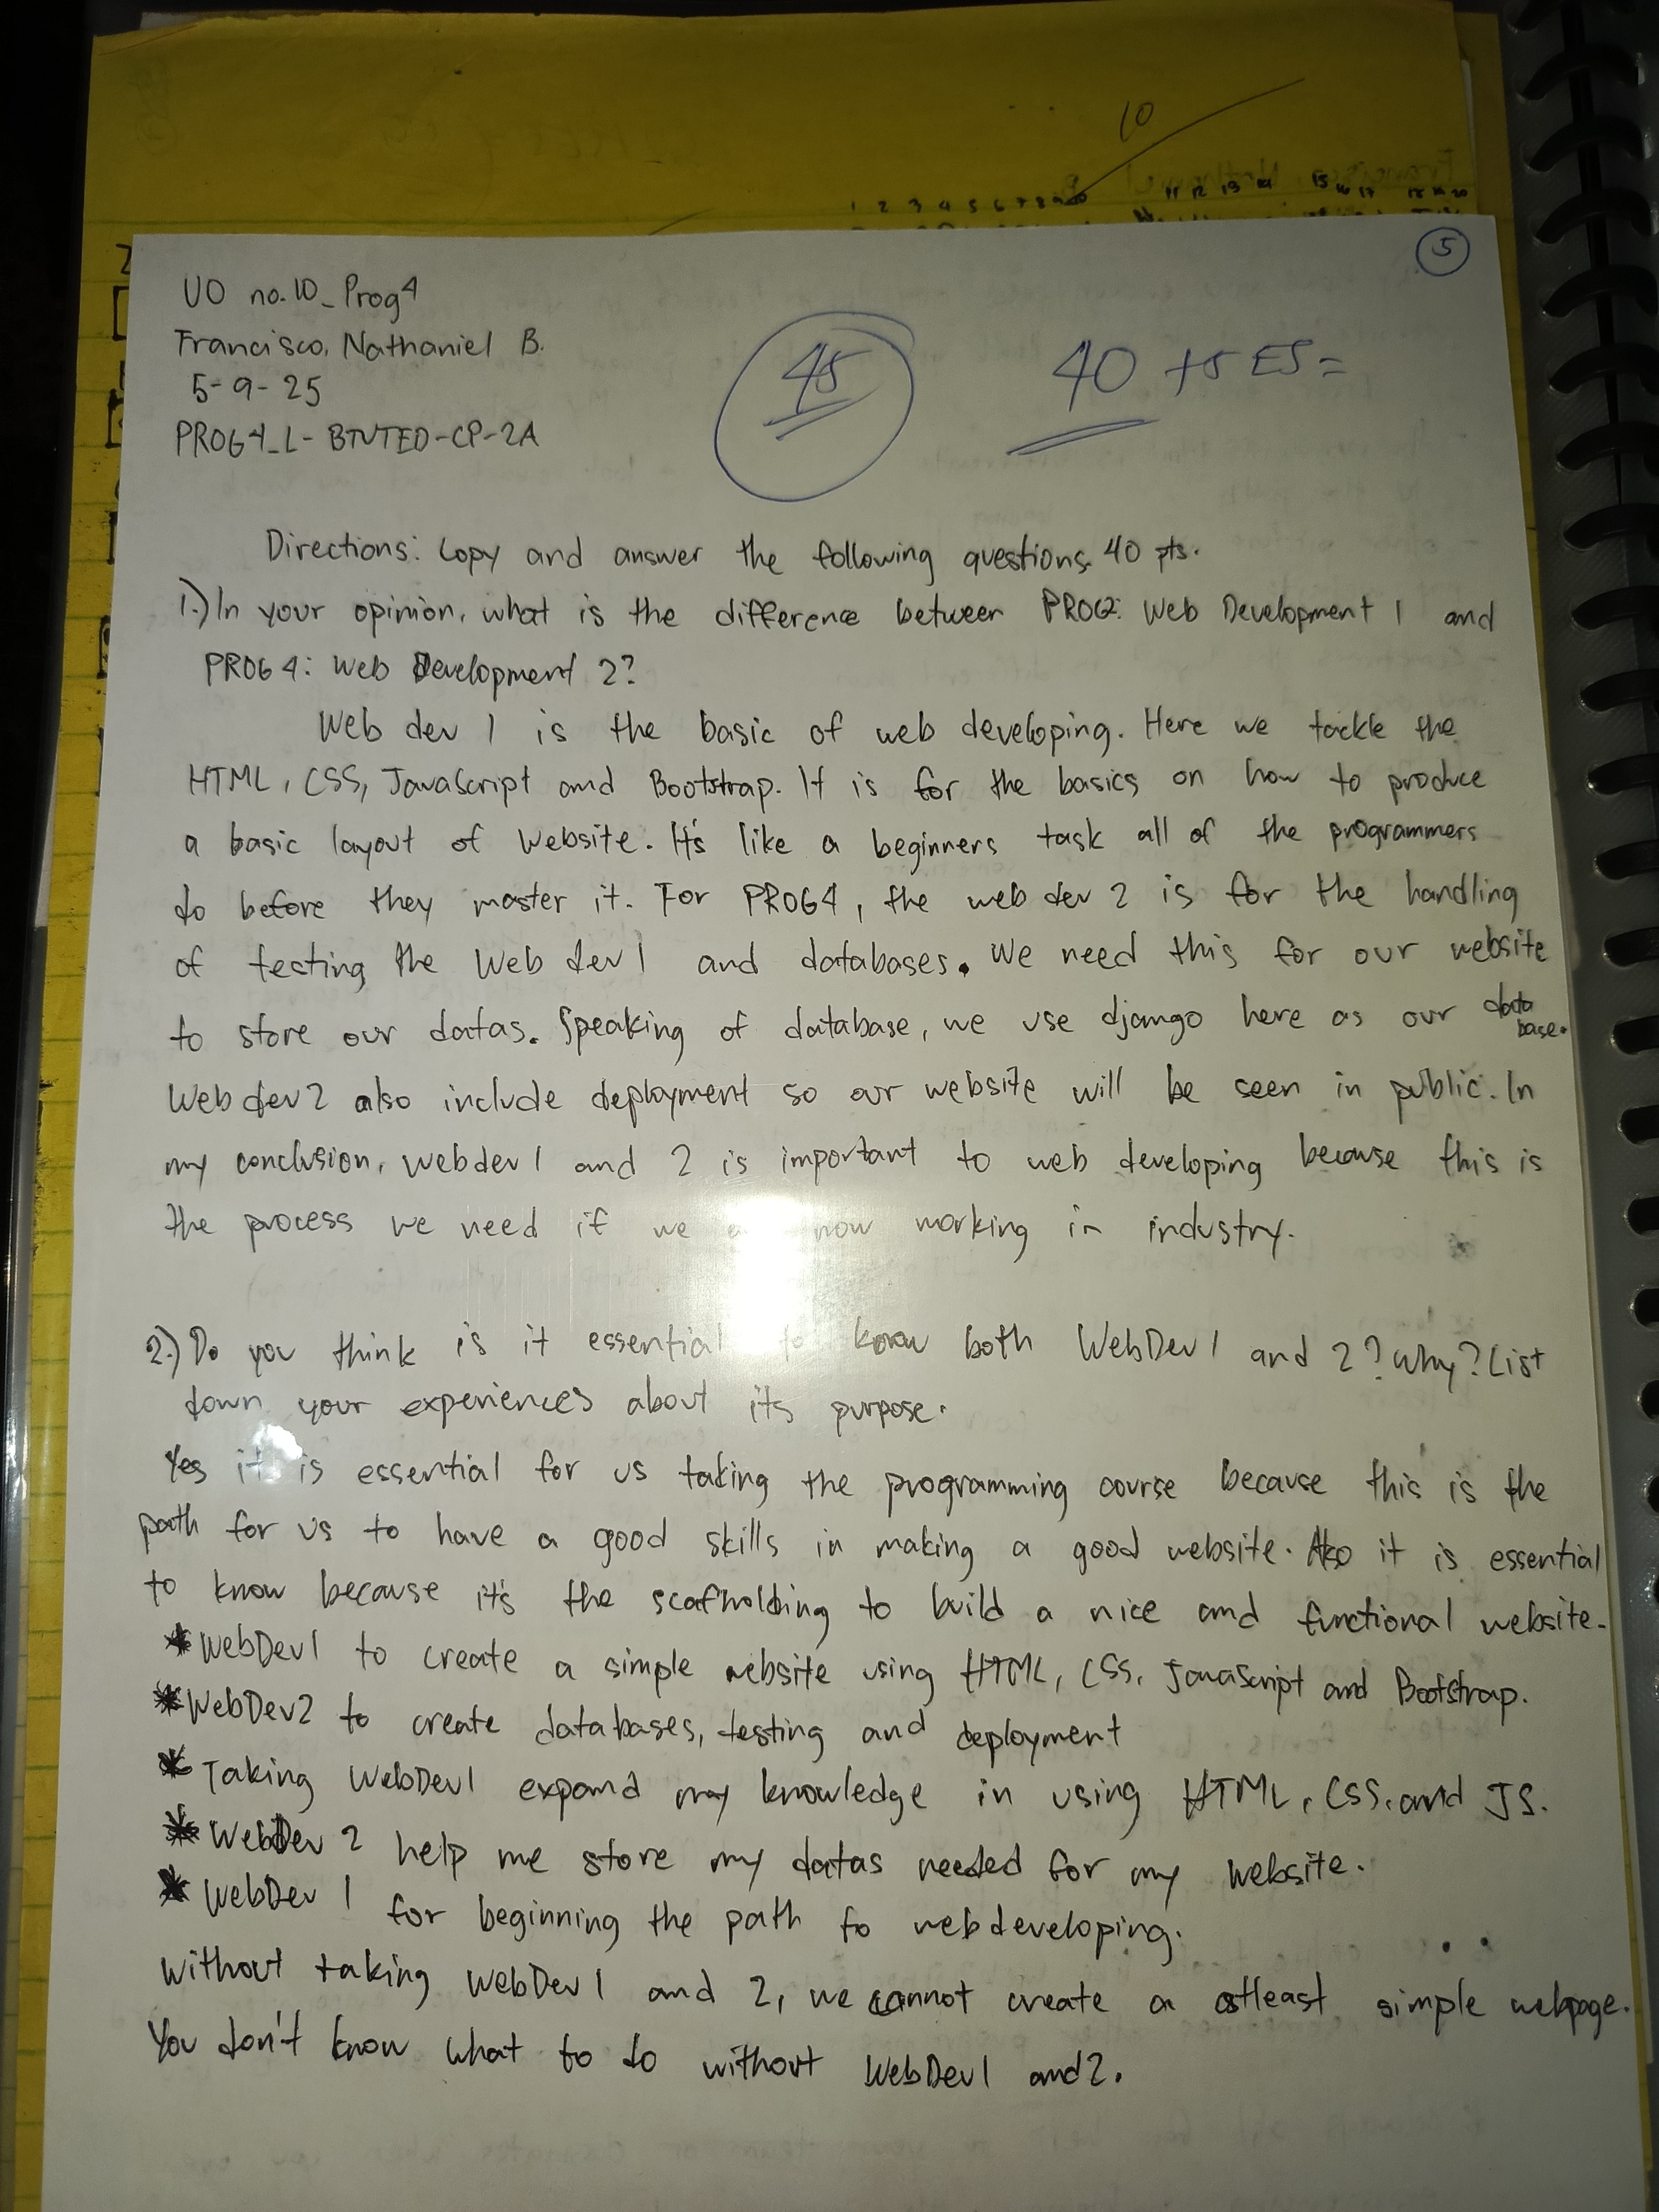 10
1 2 3 4 5 6 7 8 9 10 11 12 13 14 15 16 17 18 19 20
5
UO no.10_Prog4
Francisco, Nathaniel B.
5-9-25
PROG4_L-BTVTED-CP-2A
45
40 +5 ES=
Directions: Copy and answer the following questions. 40 pts.
1.) In your opinion, what is the difference between PROG2: Web Development 1 and
PROG 4: Web Development 2?
Web dev 1 is the basic of web developing. Here we tackle the
HTML, CSS, JavaScript and Bootstrap. It is for the basics on how to produce
a basic layout of Website. It's like a beginners task all of the programmers
do before they master it. For PROG4, the web dev 2 is for the handling
of testing the Web dev 1 and databases. We need this for our website
to store our datas. Speaking of database, we use django here as our data
base.
Web dev 2 also include deployment so our website will be seen in public. In
my conclusion, webdev 1 and 2 is important to web developing because this is
the process we need if we now working in industry.
2.) Do you think is it essential to know both WebDev 1 and 2? Why? List
down your experiences about its purpose.
Yes it is essential for us taking the programming course because this is the
path for us to have a good skills in making a good website. Also it is essential
to know because it's the scafholding to build a nice and functional website.
* WebDev1 to create a simple website using HTML, CSS, JavaScript and Bootstrap.
* WebDev2 to create databases, testing and deployment
* Taking WebDev1 expand my knowledge in using HTML, CSS, and JS.
* WebDev 2 help me store my datas needed for my website.
* WebDev 1 for beginning the path to webdeveloping.
Without taking WebDev 1 and 2, we cannot create a atleast simple webpage.
You don't know what to do without WebDev1 and 2.